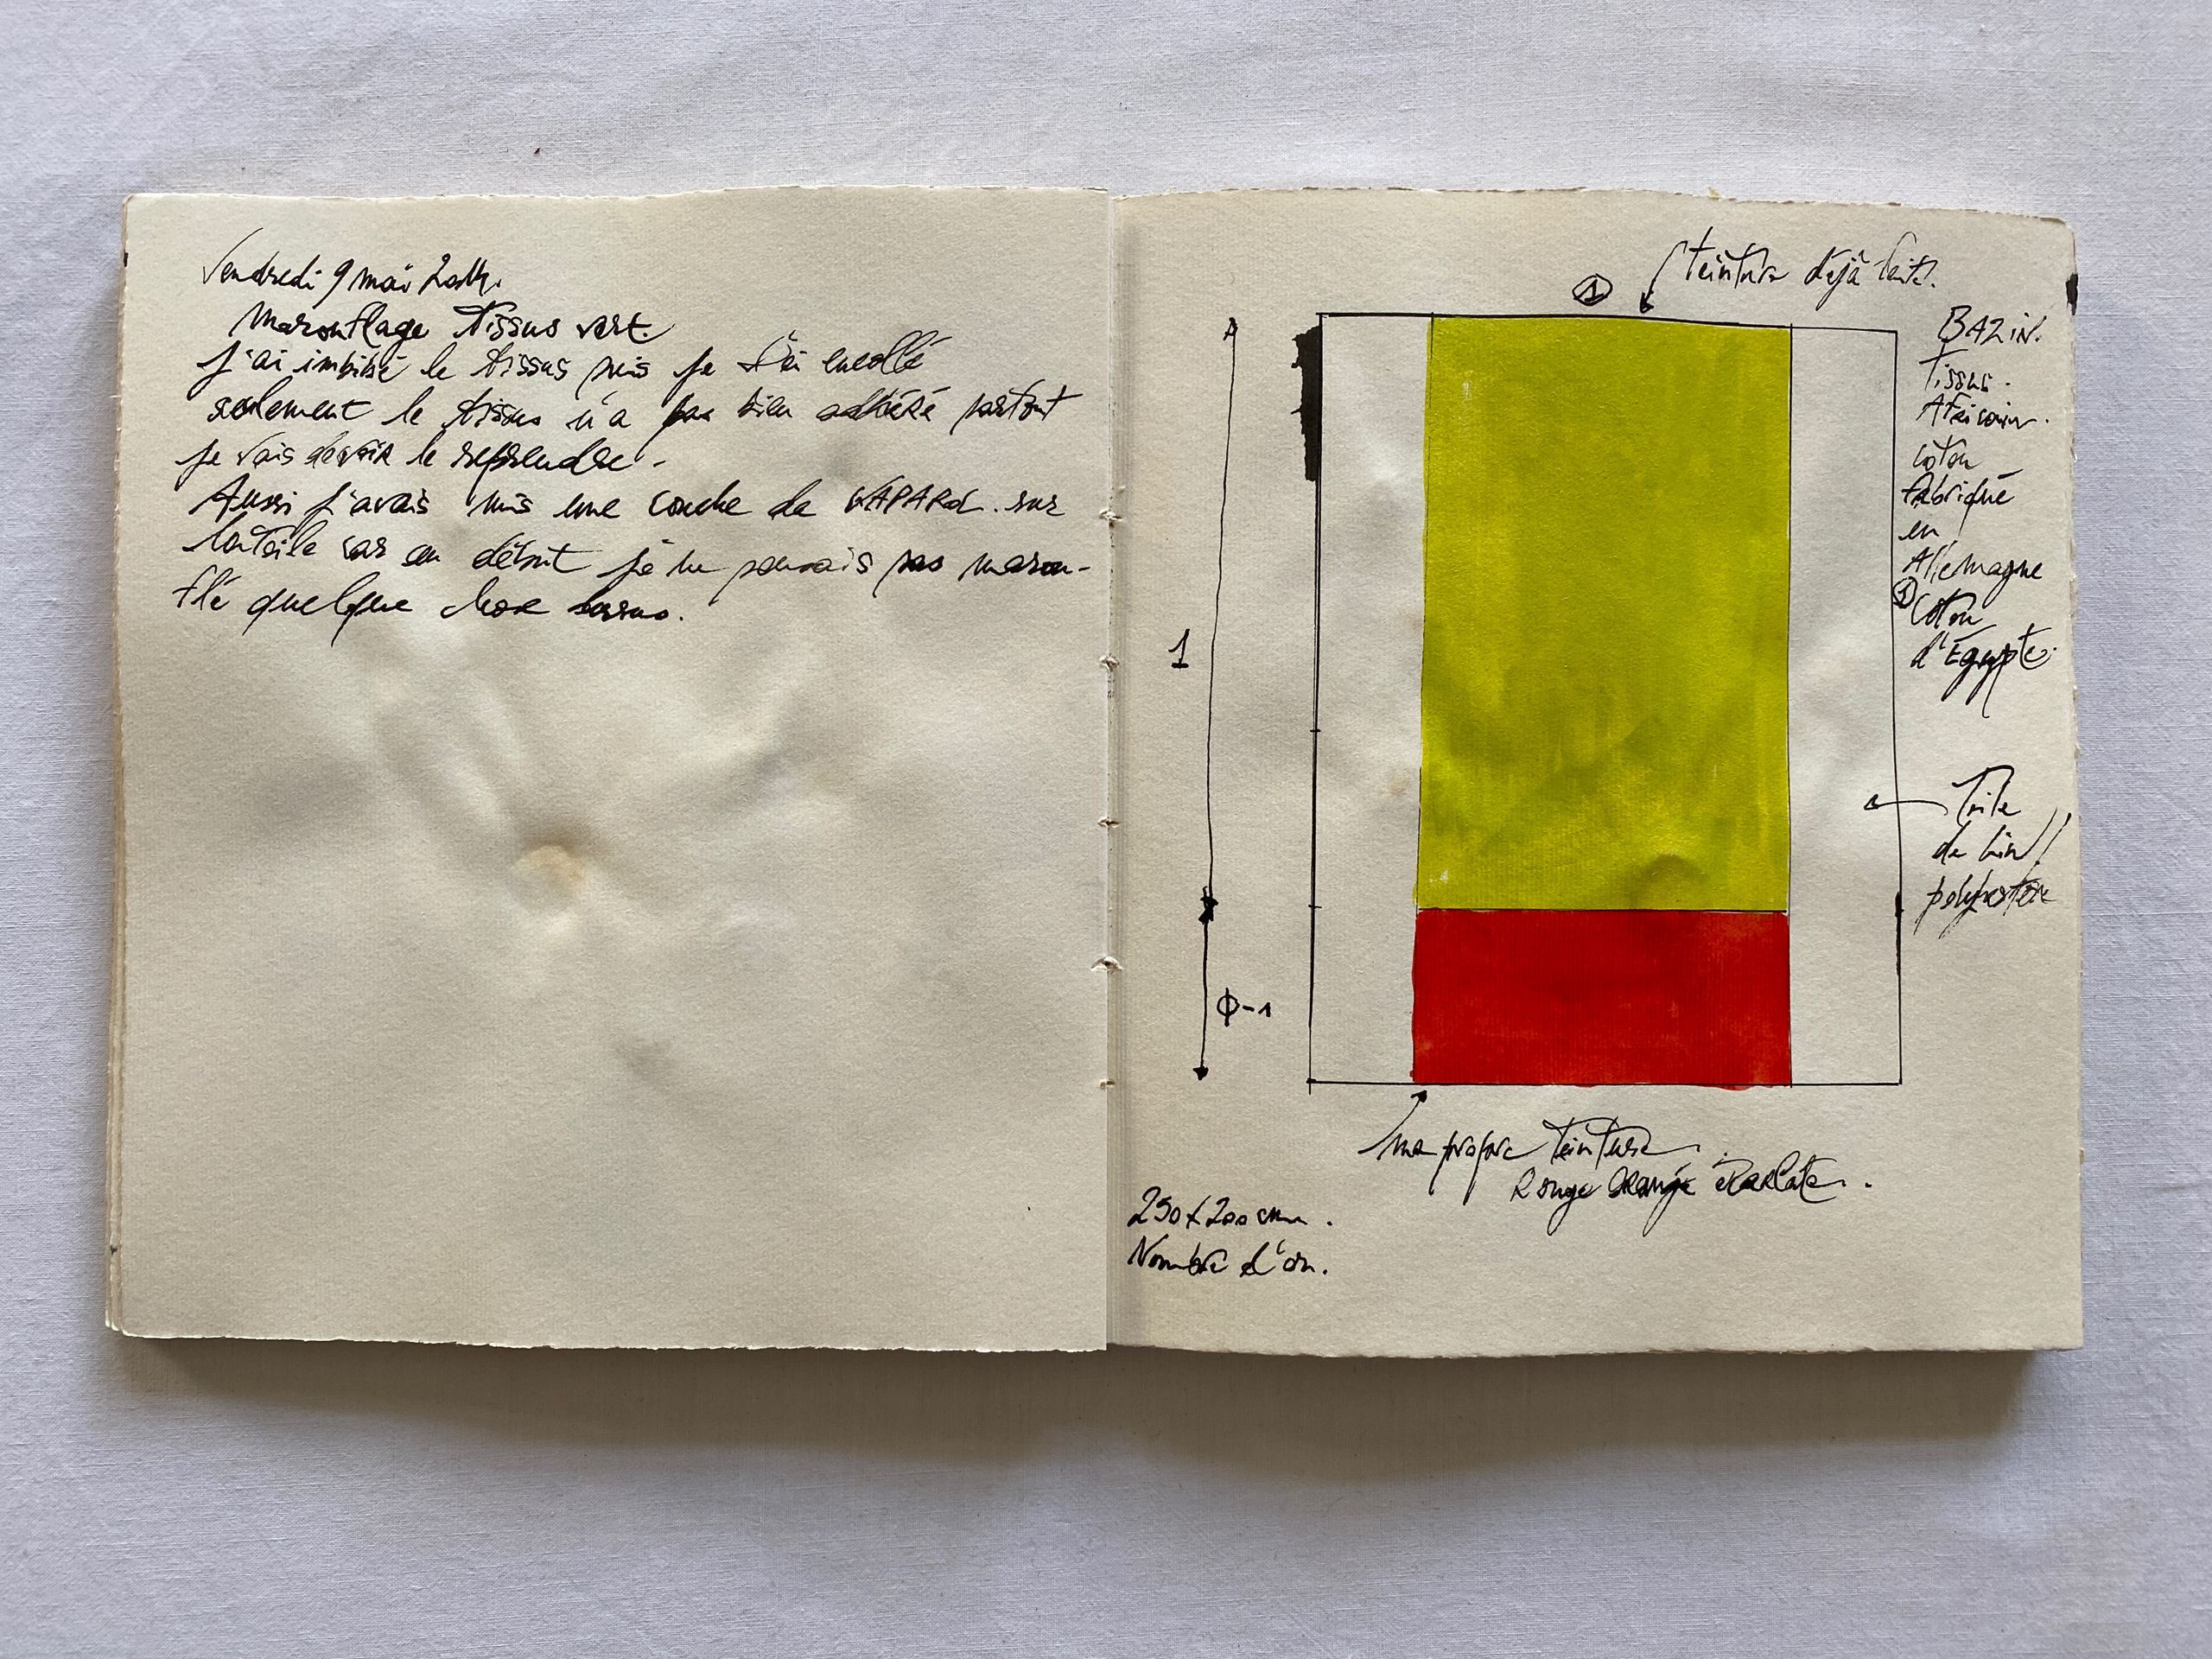 Vendredi 9 mai 2014.
Marouflage Tissus vert.
j'ai imbibé le tissus puis je l'ai encollé
seulement le tissus n'a pas bien adhéré partout
je vais devoir le reprendre.
Aussi j'avais mis une couche de GAPARd. sur
la toile car au début je ne pensais pas marou-
flé quelque chose dessus.
teinture déjà faite.
1
BAZIN.
Tissus.
Africain.
coton
fabriqué
en
Allemagne
1 Coton
d'Egypte.
1
Toile
de lin/
polyester
Φ-1
ma propre teinture.
Rouge Orangé écarlate.
250x200 cm.
Nombre d'or.